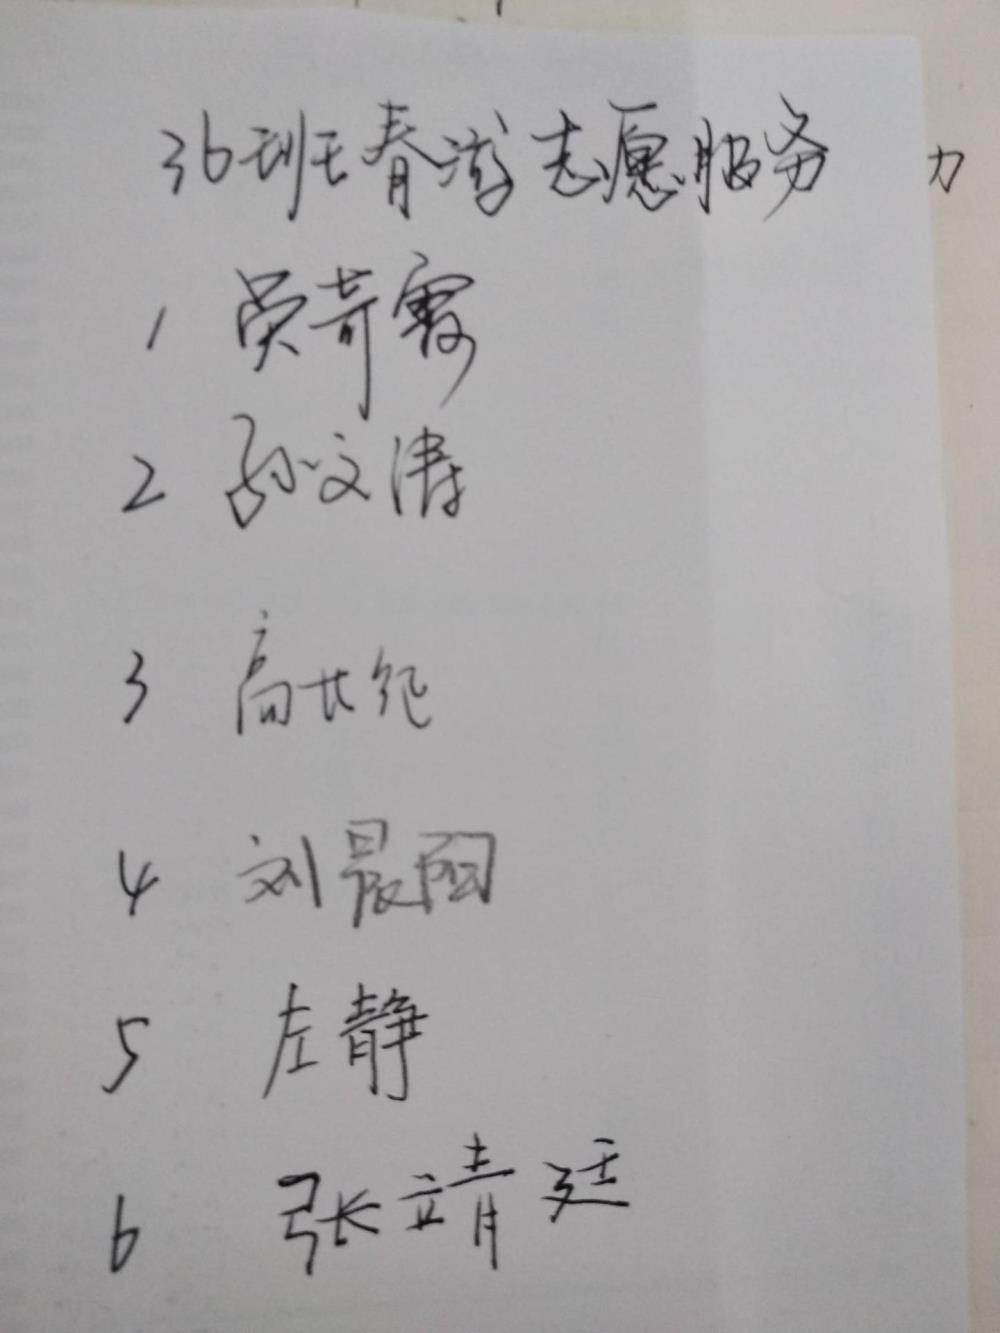 36班春游志愿服务 力
1 吴奇霖
2 孙文涛
3 高世纪
4 刘晨阳
5 左静
6 张靖廷